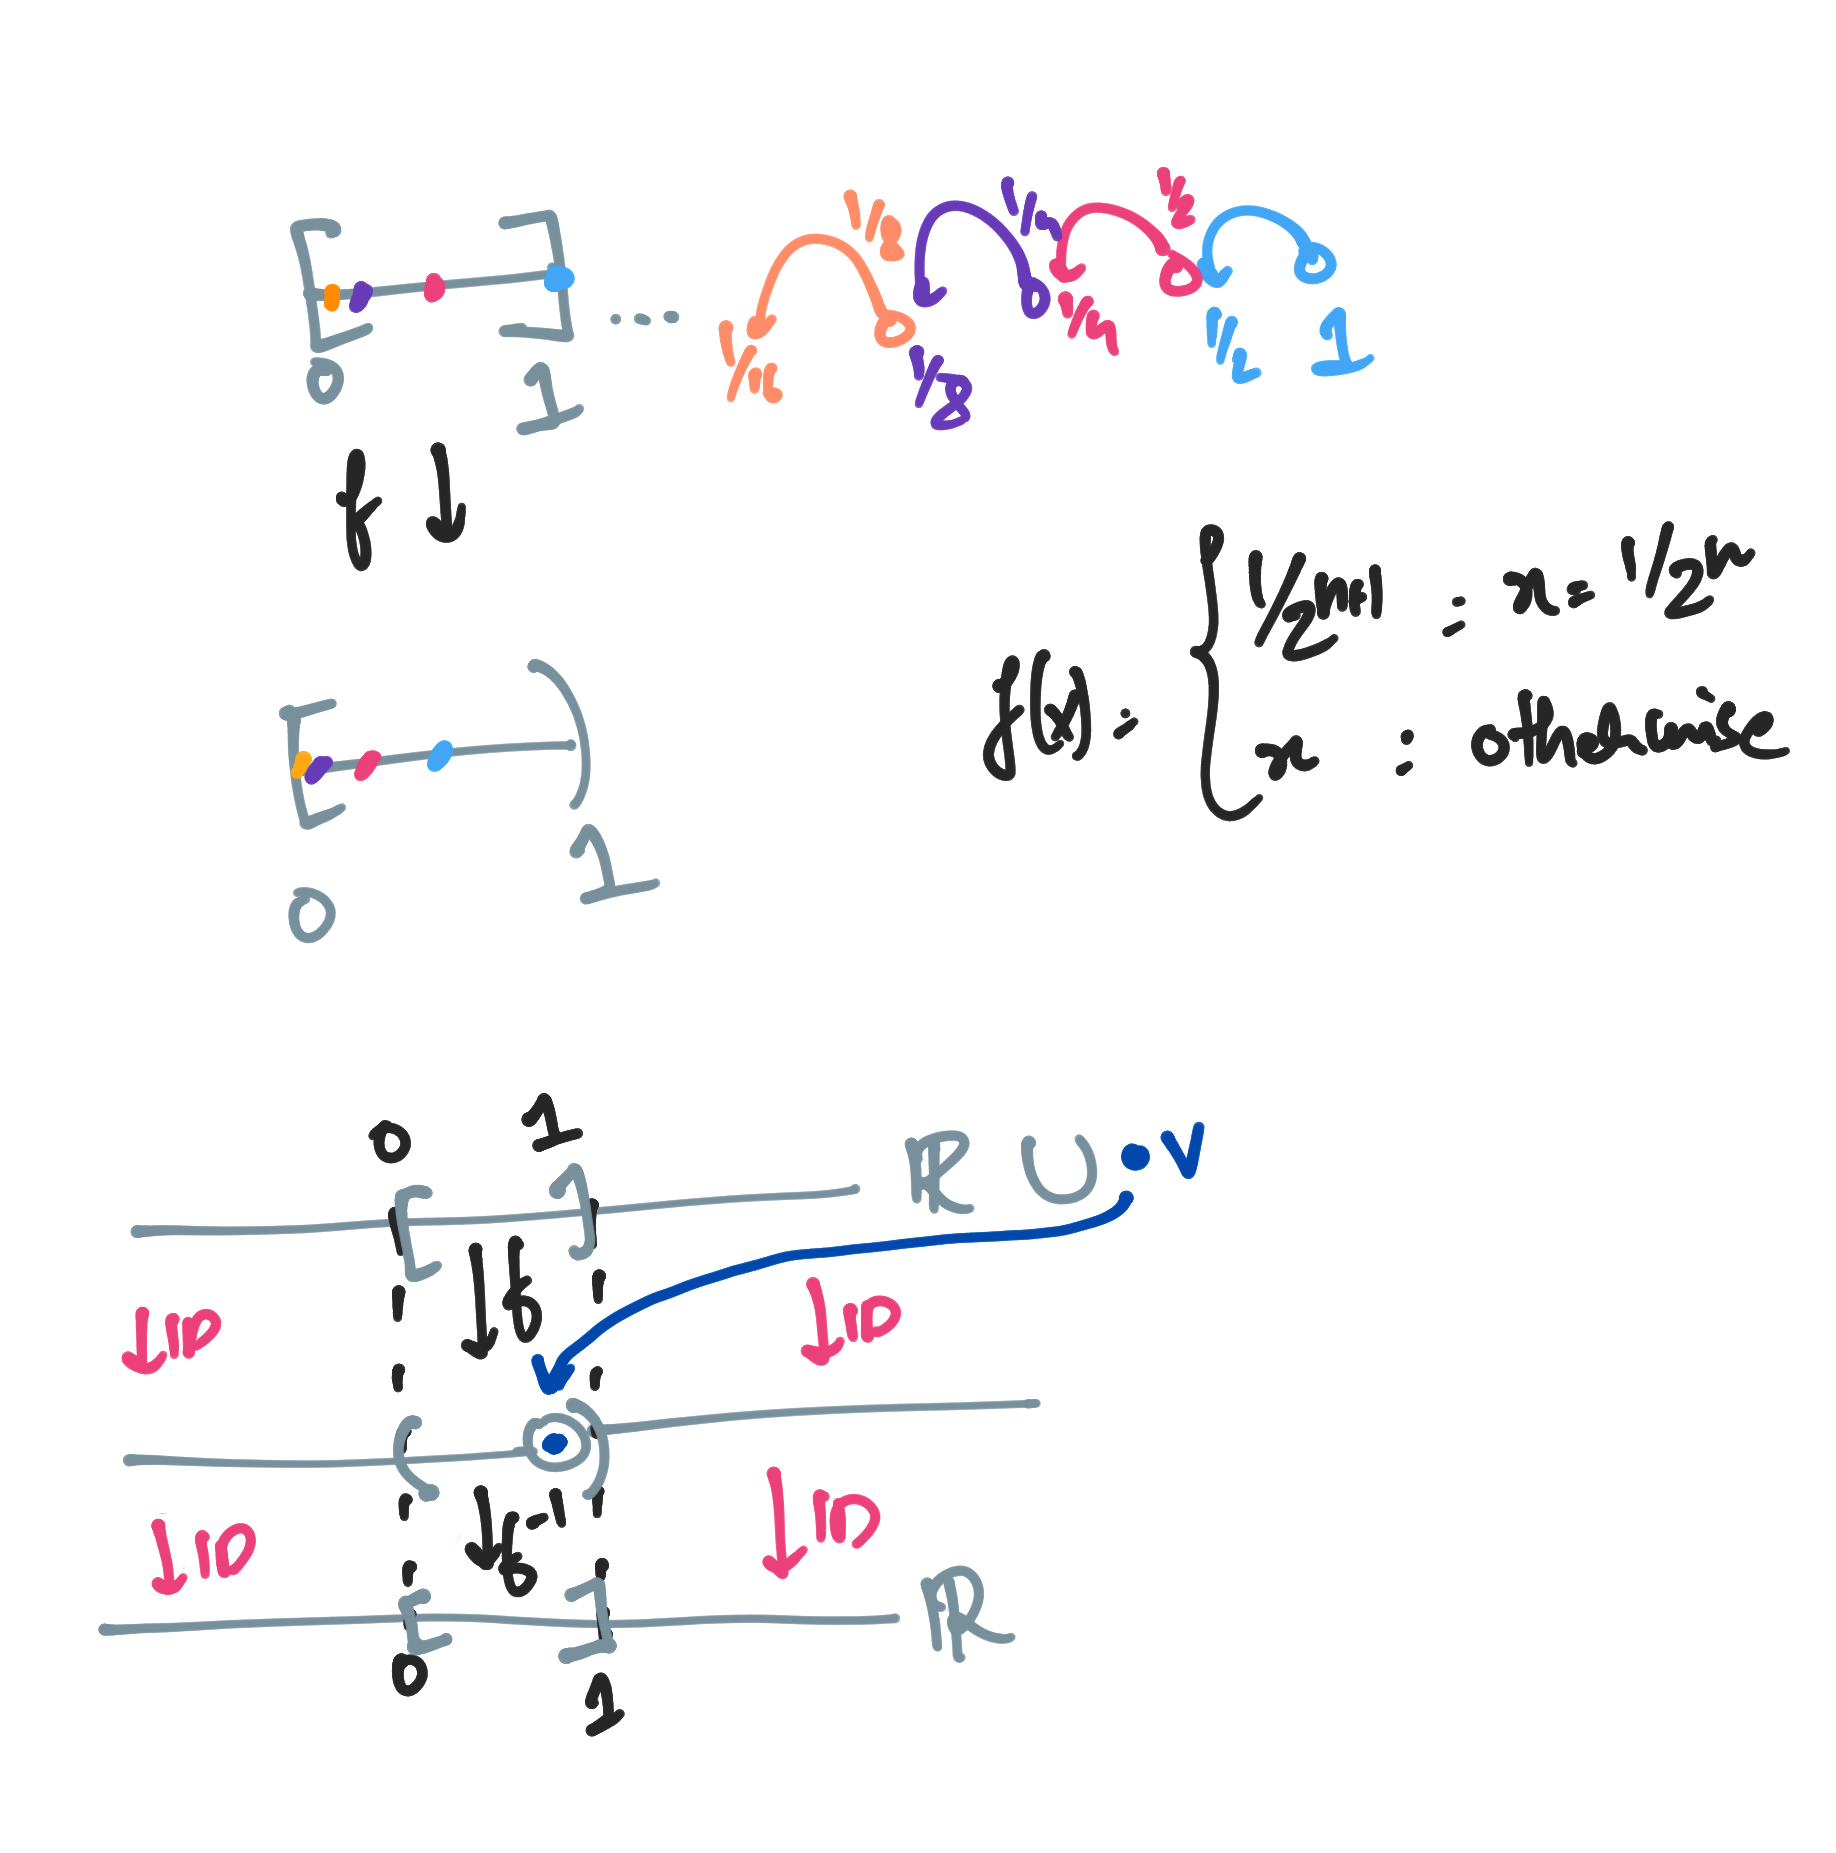 1/8 1/4 1/2
1/16 1/8 1/4 1/2 1
0 1
f ↓
f(x) : { 1/2^{n+1} : x = 1/2^n
x : otherwise
0 1
0 1 ℝ ∪ • v
↓ ID ↓ f ↓ ID
↓ ID ↓ f^{-1} ↓ ID
ℝ
0 1